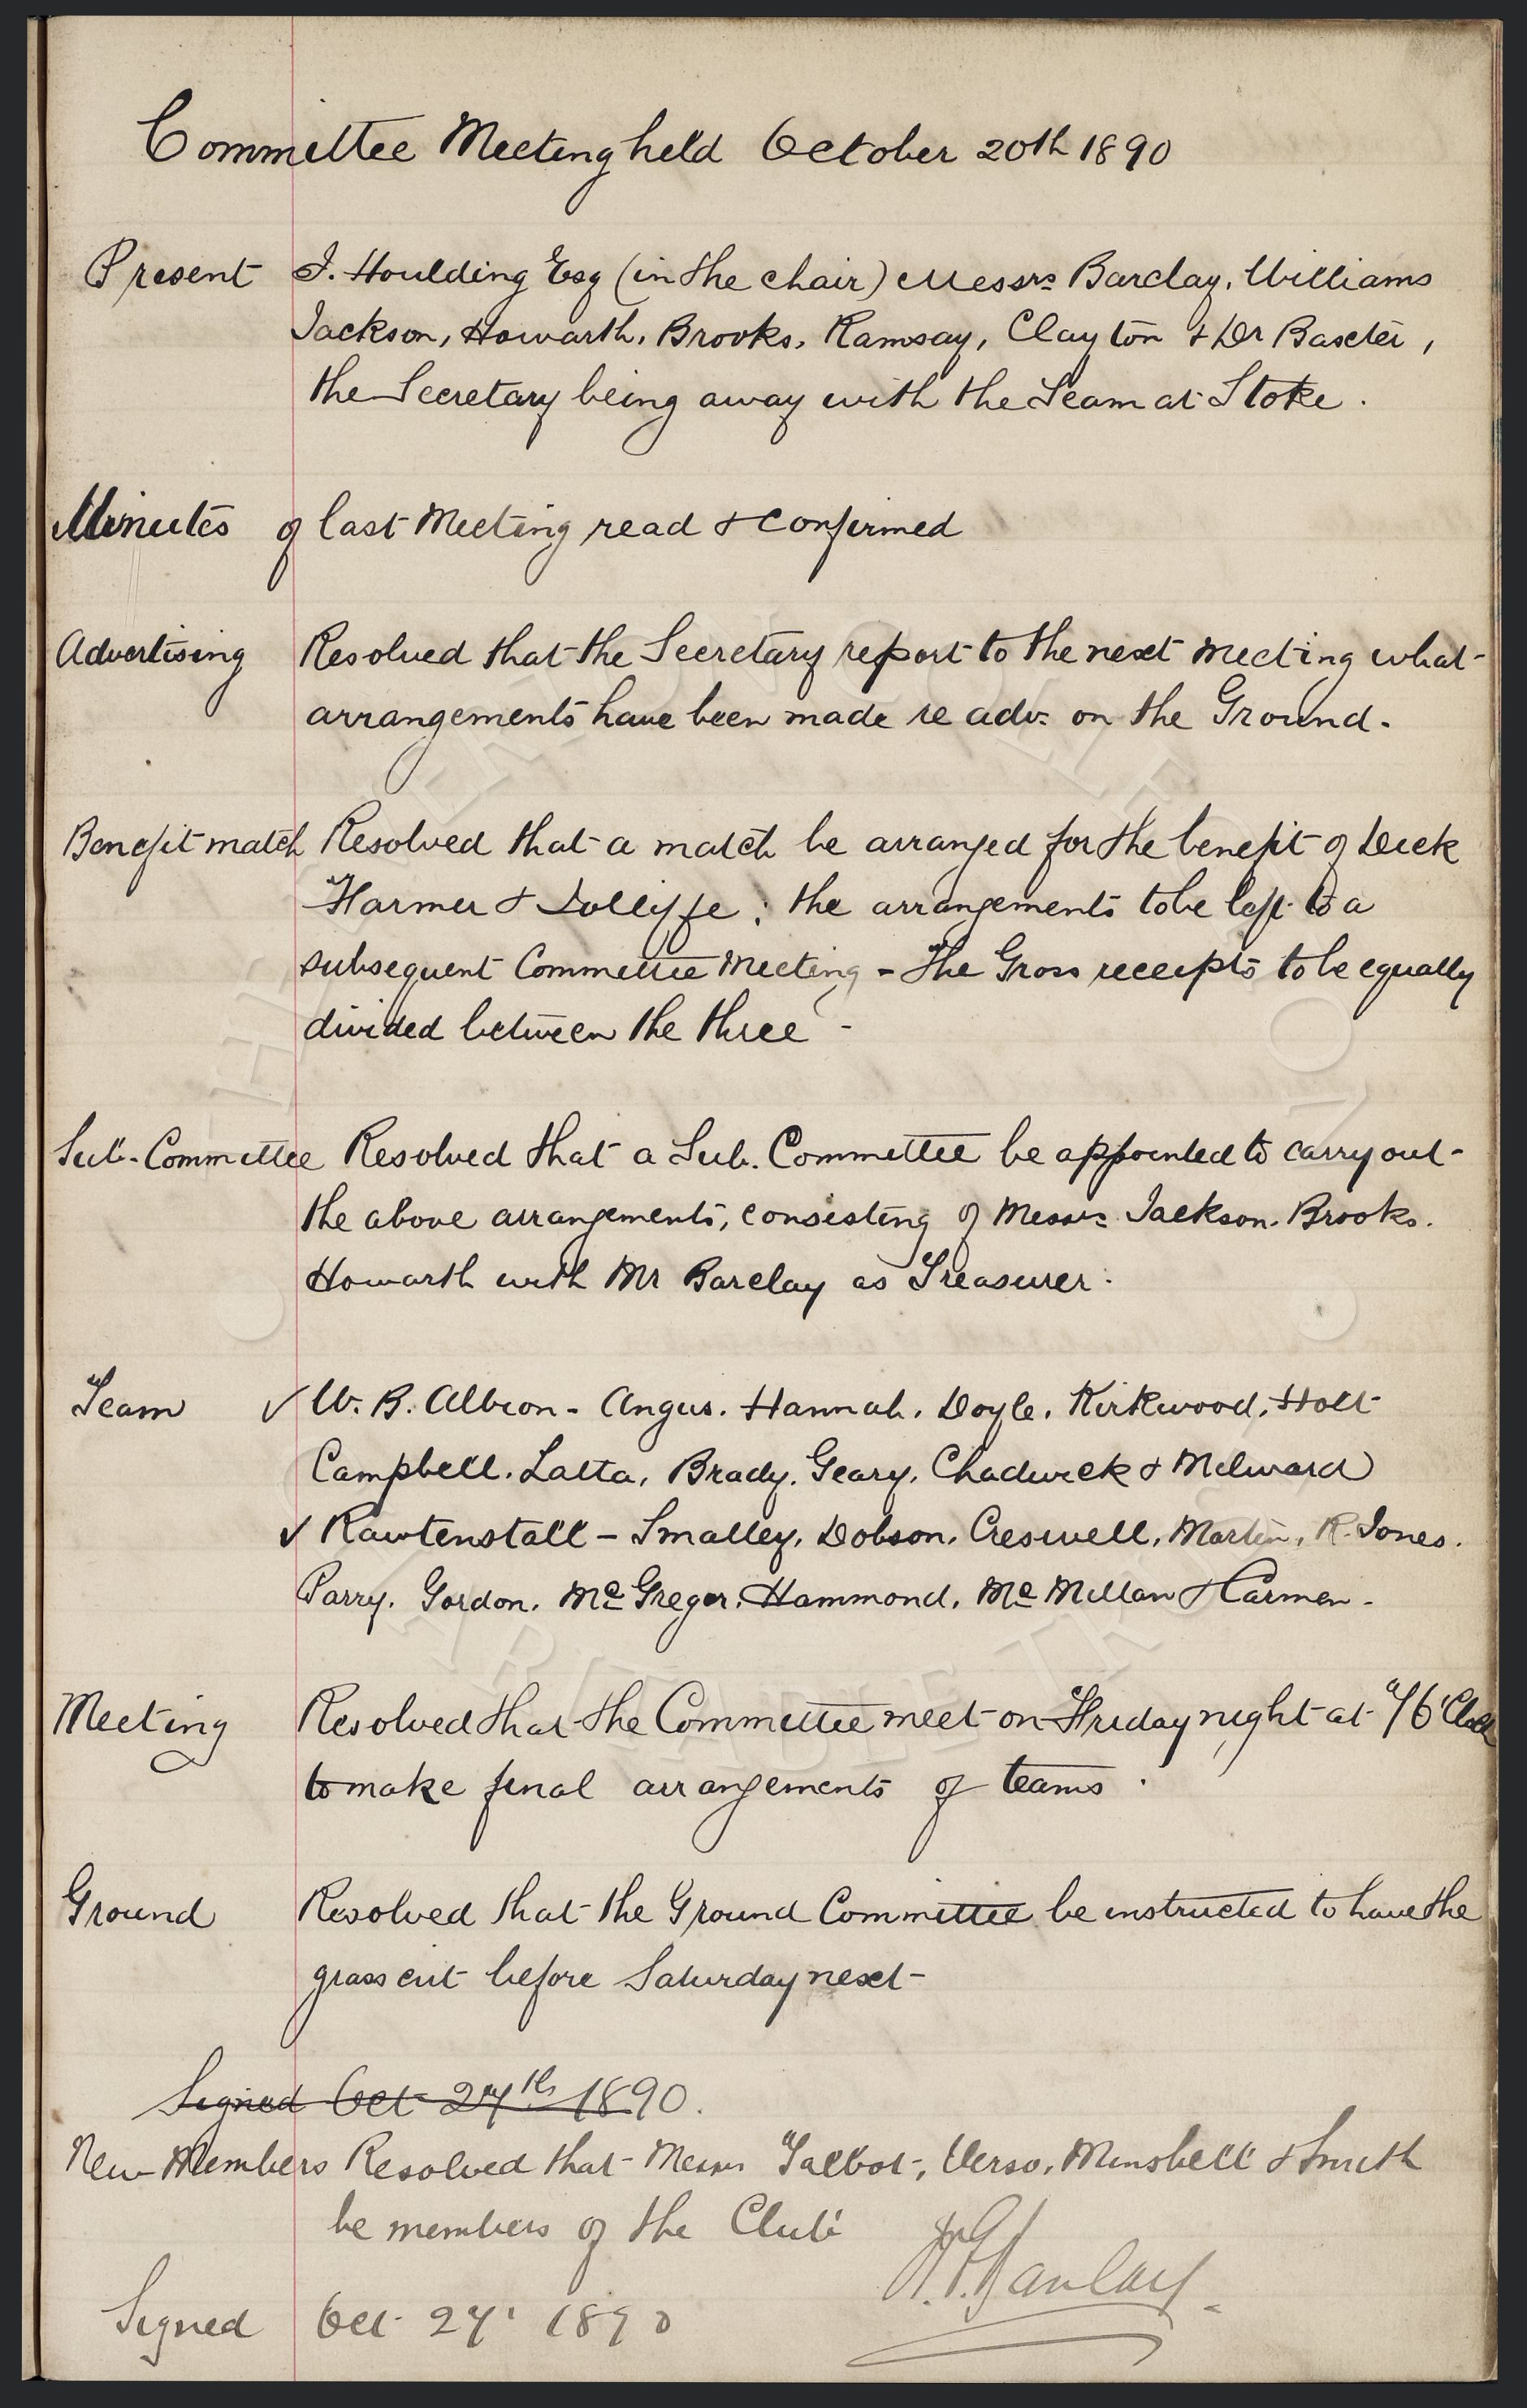 Committee Meeting held October 20th 1890
Present J. Houlding Esq (in the chair) Messrs Barclay, Williams
Jackson, Howarth, Brooks, Ramsay, Clayton & Dr Baxter,
the Secretary being away with the Team at Stoke.
Minutes of last Meeting read & confirmed
Advertising Resolved that the Secretary report to the next meeting what
arrangements have been made re advs on the Ground.
Benefit match Resolved that a match be arranged for the benefit of Dick
Harmer & Jolliffe; the arrangements to be left to a
subsequent Committee Meeting - The Gross receipts to be equally
divided between the three -
Sub-Committee Resolved that a Sub. Committee be appointed to carry out
the above arrangements, consisting of Messrs Jackson. Brooks.
Howarth with Mr Barclay as Treasurer.
Team ✓ W. B. Albion - Angus. Hannah. Doyle. Kirkwood, Holt
Campbell. Latta, Brady. Geary. Chadwick & Milward
✓ Rawtenstall - Smalley, Dobson. Creswell, Martin, R. Jones.
Parry. Gordon. McGregor. Hammond. McMillan & Carmen.
Meeting Resolved that the Committee meet on Friday night at 6'Clock
to make final arrangements of teams.
Ground Resolved that the Ground Committee be instructed to have the
grass cut before Saturday next-
Signed Oct 27th 1890.
New Members Resolved that Messrs Talbot, Verso, Minshell & Smith
be members of the Club
Signed Oct 27' 1890